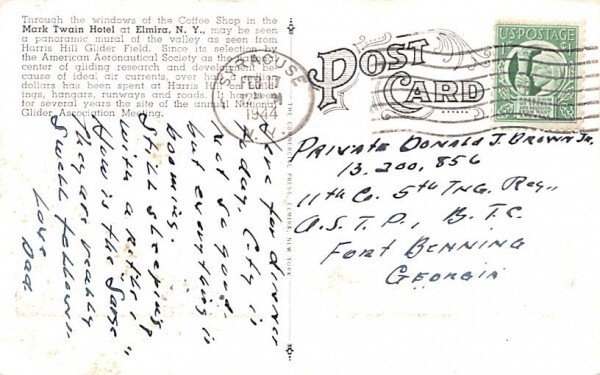 Through the windows of the Coffee Shop in the
Mark Twain Hotel at Elmira, N. Y., may be seen
a panoramic mural of the valley as seen from
Harris Hill Glider Field. Since its selection by
the American Aeronautical Society as the
center of gliding research and because
of ideal air currents, over
dollars has been spent at Harris Hill on
ings, hangars, runways and roads. It has been
for several years the site of the annual National
Glider Association Meeting.
Here for dinner
today. City is
not so good
but everything is
booming.
Still sleeping
with a rifle?
How is the "Same"
They are really
Swell fellows.
Love
Dad
THE COMMERCIAL PRESS, ELMIRA, NEW YORK
POST
CARD
SYRACUSE
FEB 17
1944
N.Y.
US POSTAGE
PRIVATE DONALD J. BROWN JR.
13,200,856
11th Co. 5th TNG. REG.,
A.S.T.P., B.T.C.
FORT BENNING
GEORGIA